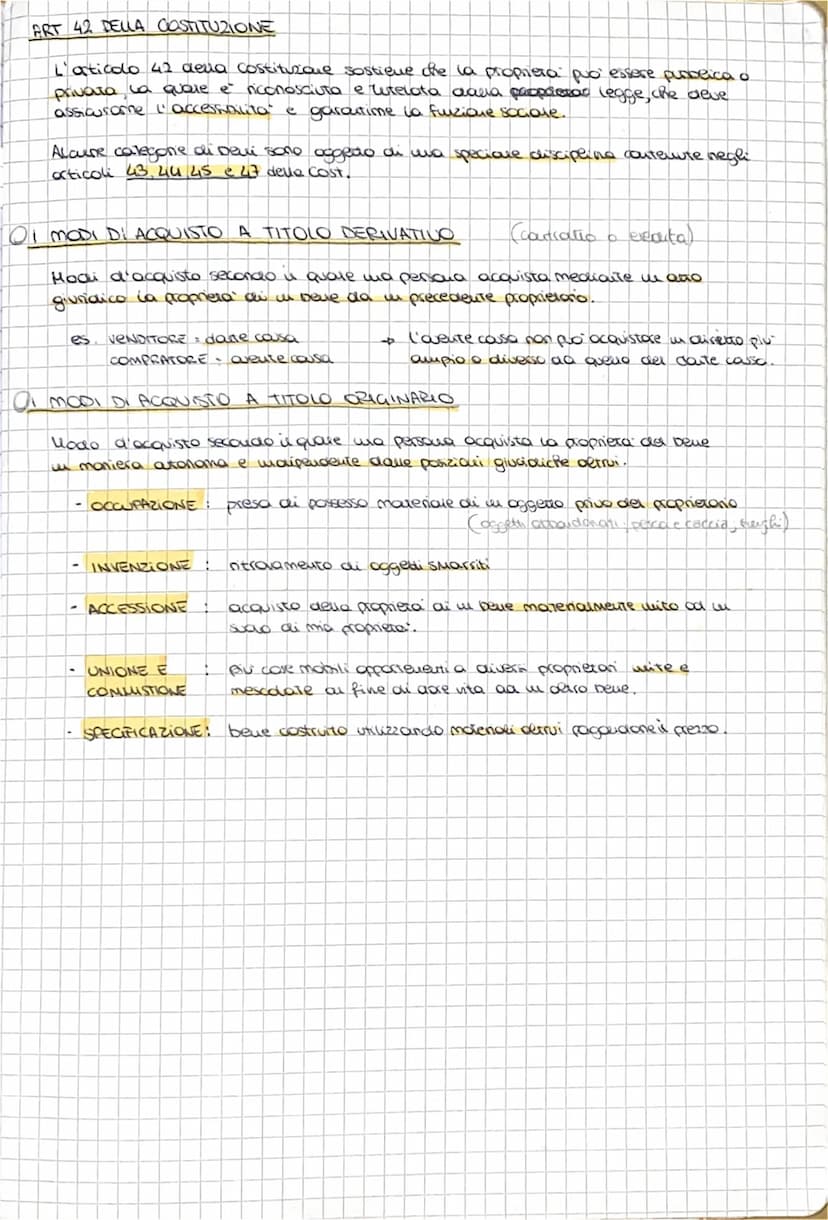 ART 42 DELLA COSTITUZIONE
L'articolo 42 della costituzione sostiene che la proprietà può essere pubblica o
privata, la quale è riconosciuta e tutelata dalla legge, che deve
assicurarne l'accessibilità e garantirne la funzione sociale.
Alcune categorie di beni sono oggetto di una speciale disciplina contenute negli
articoli 43, 44, 45 e 47 della Cost.
I MODI DI ACQUISTO A TITOLO DERIVATIVO (contratto o eredità)
Modi d'acquisto secondo il quale una persona acquista mediante un atto
giuridico la proprietà di un bene da un precedente proprietario.
es. VENDITORE = dante causa → l'avente causa non può acquistare un diritto più
COMPRATORE = avente causa ampio o diverso da quello del dante causa.
I MODI DI ACQUISTO A TITOLO ORIGINARIO
Modo d'acquisto secondo il quale una persona acquista la proprietà del bene
in maniera autonoma e indipendente dalle posizioni giuridiche altrui.
- OCCUPAZIONE : presa di possesso materiale di un oggetto privo del proprietario
(oggetti abbandonati, pesca e caccia, funghi)
- INVENZIONE : ritrovamento di oggetti smarriti
- ACCESSIONE : acquisto della proprietà di un bene materialmente unito ad un
suolo di mia proprietà.
- UNIONE E : più cose mobili appartenenti a diversi proprietari unite e
COMMISTIONE mescolate al fine di dare vita ad un altro bene.
- SPECIFICAZIONE : bene costruito utilizzando materiali altrui pagandone il prezzo.